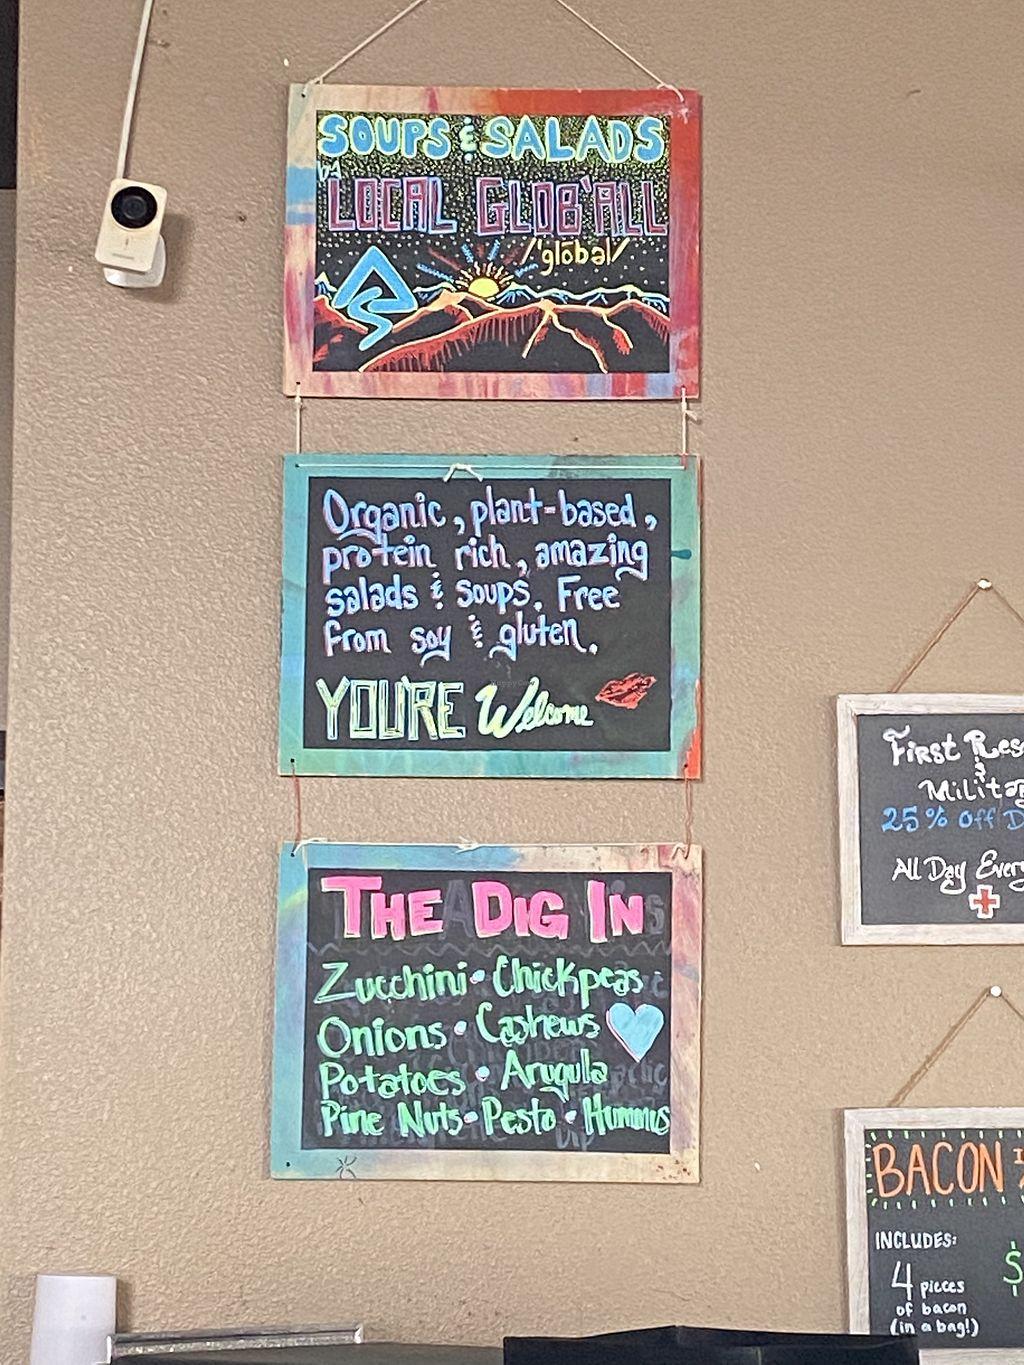 SOUPS & SALADS
by
LOCAL GLOB'ALL
/'glōbəl/
Organic, plant-based,
protein rich, amazing
salads & soups. Free
from soy & gluten.
YOU'RE Welcome
THE DIG IN
Zucchini • Chickpeas
Onions • Cashews
Potatoes • Arugula
Pine Nuts • Pesto • Hummus
First
&
25% Off
All Day
BACON
INCLUDES:
4 pieces
of bacon
(in a bag!)
$